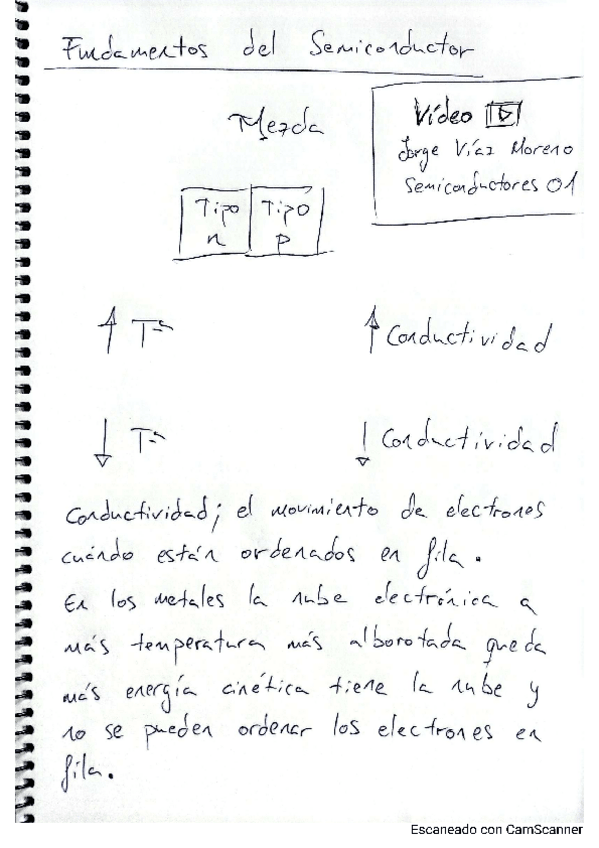 Fundamentos del Semiconductor
Mezcla
Vídeo
Jorge Víaz Moreno
Semiconductores 01
Tipo n
Tipo p
↑ Tª
↑ Conductividad
↓ Tª
↓ Conductividad
Conductividad; el movimiento de electrones
cuándo están ordenados en fila.
En los metales la nube electrónica a
más temperatura más alborotada queda
más energía cinética tiene la nube y
no se pueden ordenar los electrones en
fila.
Escaneado con CamScanner